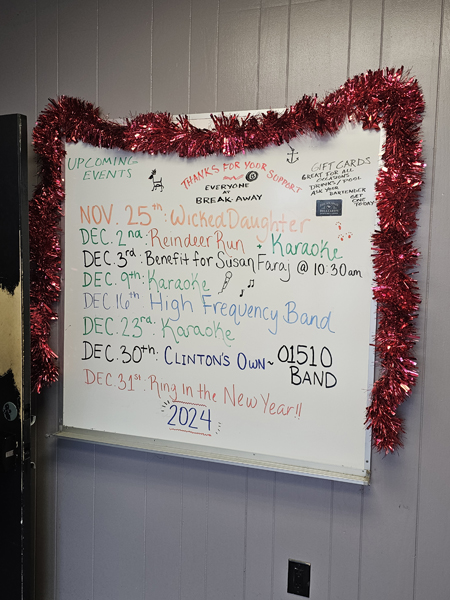 UPCOMING
EVENTS
THANKS FOR YOUR SUPPORT
EVERYONE
AT
BREAK-AWAY
GIFT CARDS
GREAT FOR ALL
OCCASIONS
DRINKS/POOL
ASK YOUR
BARTENDER
GET
ONE
TODAY
NOV. 25th: Wicked Daughter
DEC. 2nd: Reindeer Run + Karaoke
DEC. 3rd: Benefit for Susan Faraj @ 10:30am
DEC. 9th: Karaoke
DEC 16th: High Frequency Band
DEC. 23rd: Karaoke
DEC. 30th: CLINTON'S OWN~ 01510
BAND
DEC. 31st: Ring In the New Year!!
2024